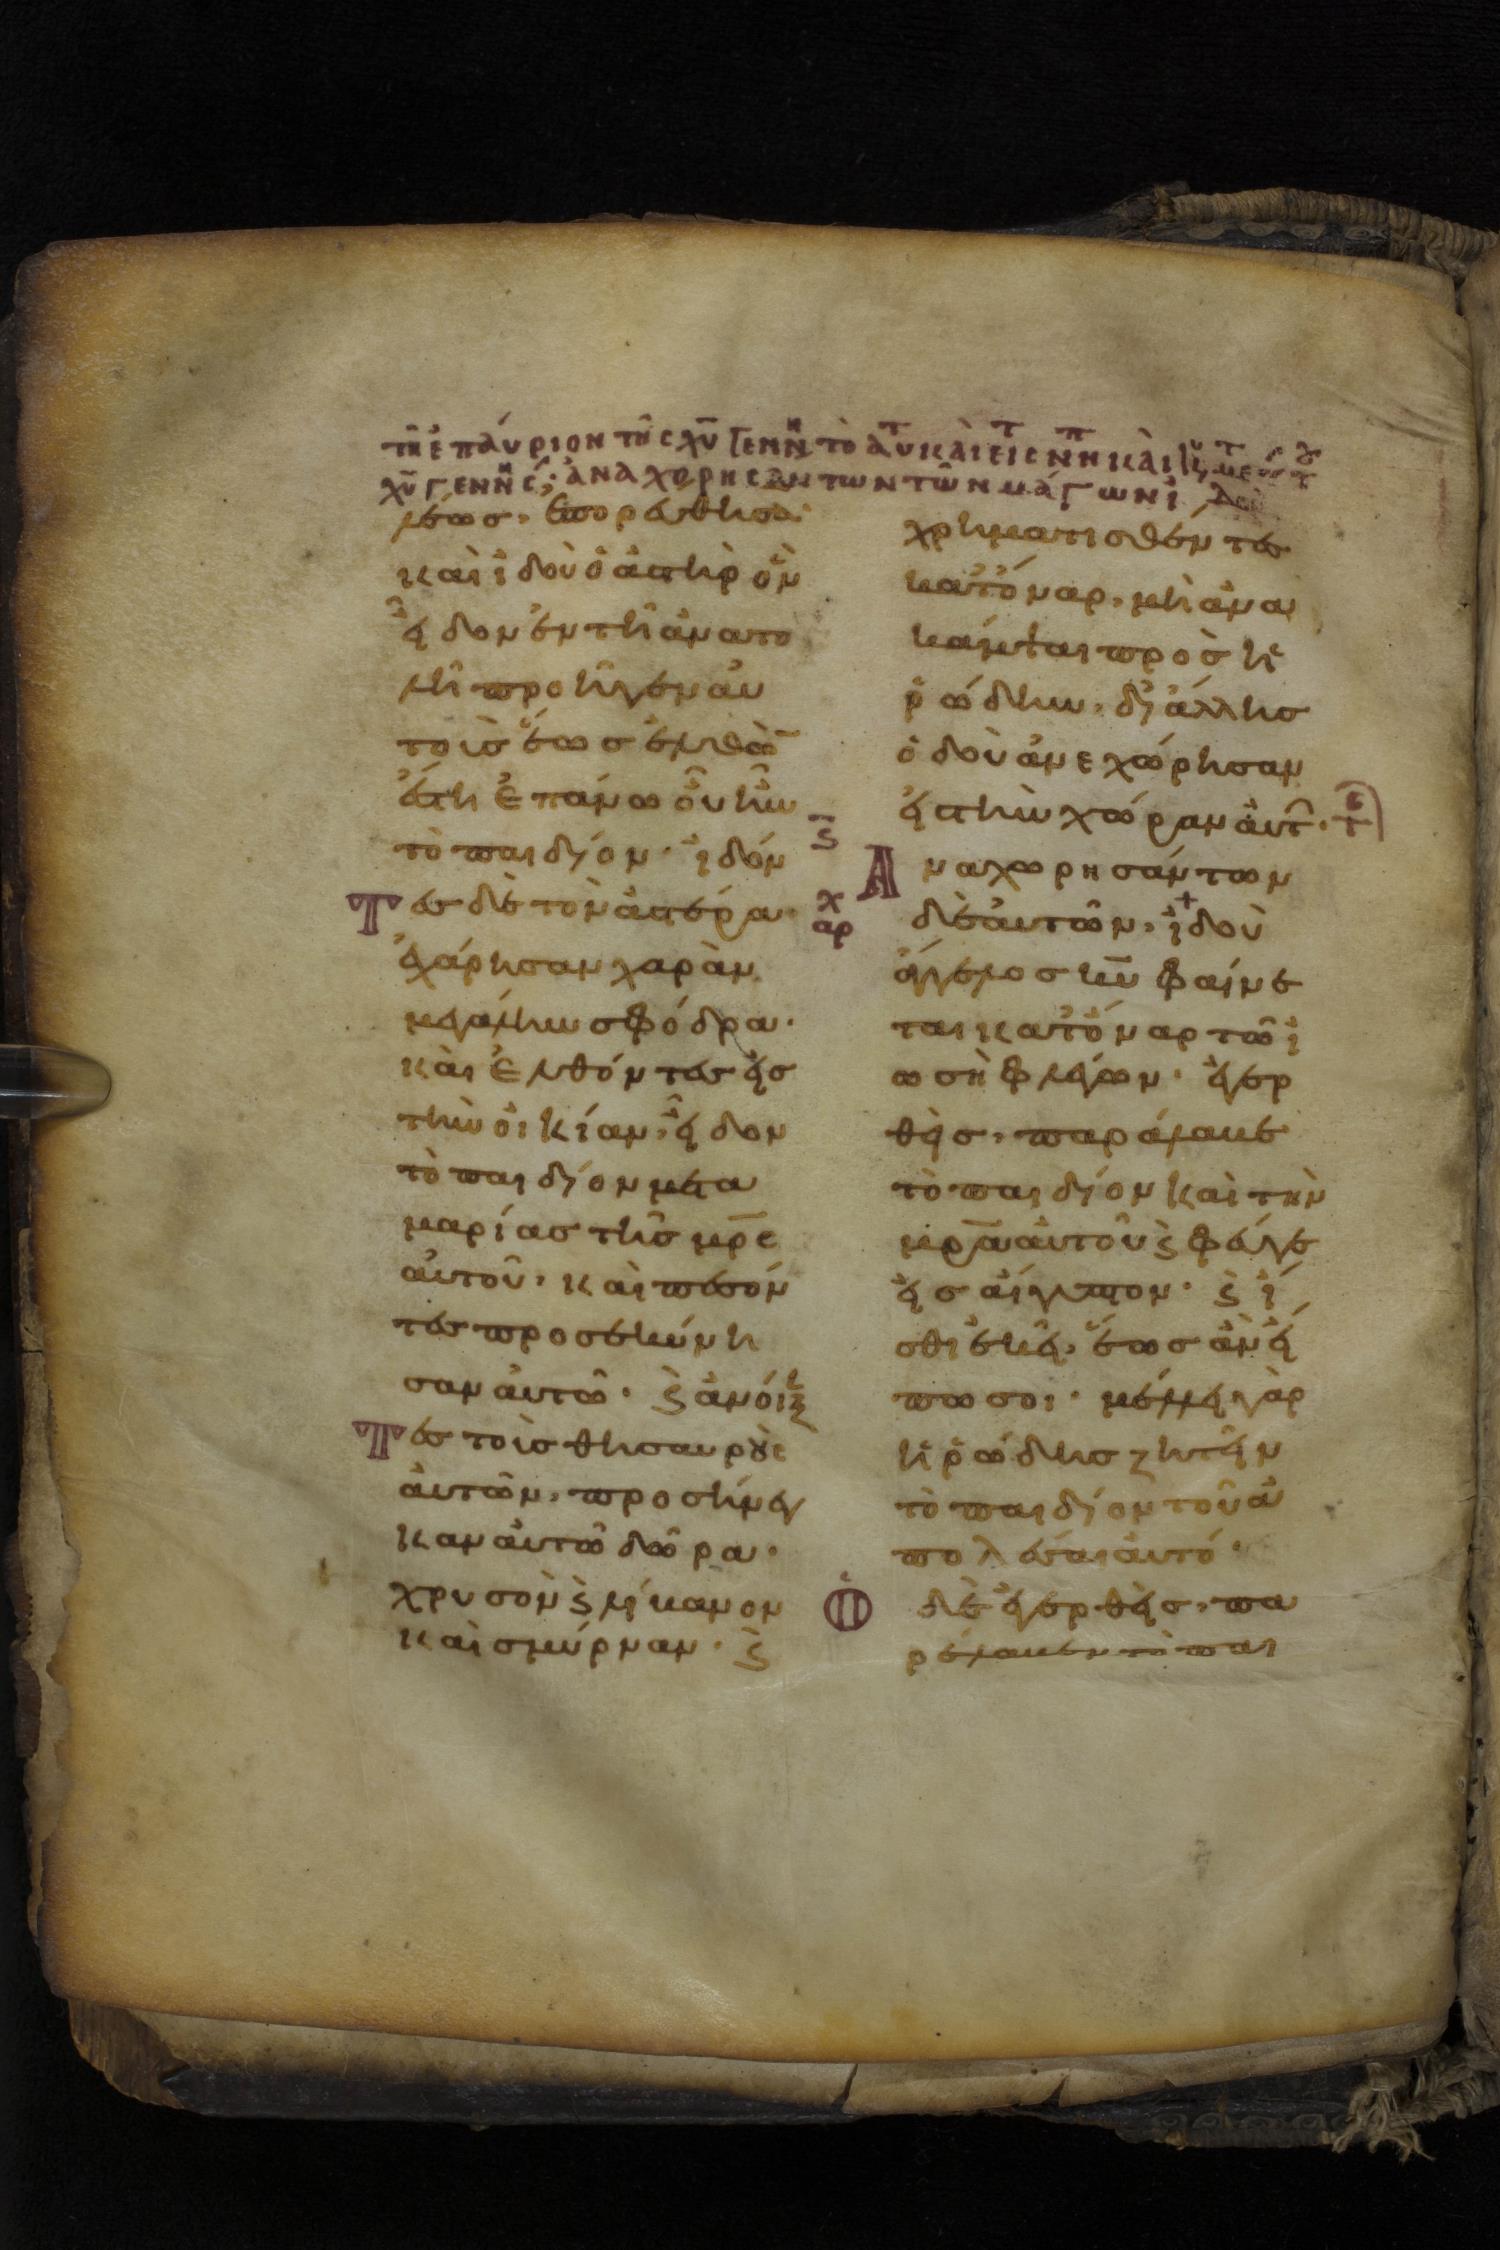 τῆ ἐπαύριον τῆς χῦ γεννή τὸ
χῦ γεννή ἀναχορησάντων τῶν μάγων ἰ
λέως, ἐπορεύθησα
καὶ ἰδοὺ ὁ ἀστὴρ ὃν
εἶδον ἐν τῆ ἀνατο
λῆ προῆγεν αὐ
τοὺς ἕως ἐλθὼ̄
ἔστη ἐπάνω οὗ ἦν
τὸ παιδίον· ἰδόν
Τες δὲ τὸν ἀστέρα·
ἐχάρησαν χαρὰν
μεγάλην σφόδρα·
καὶ ἐλθόντες εἰς
τὴν οἰκίαν, εἶδον
τὸ παιδίον μετα
μαρίας τῆς μρ̄ς
αὐτοῦ· καὶ πεσόν
τες προσεκύνη
σαν αὐτῶ· ϛ ἀνοίξ
Τες τοὺς θησαυροὺς
αὐτῶν, προσήνεγ
καν αὐτῶ δῶρα·
χρυσὸν ϛ λίβανον
καὶ σμύρναν· ϛ
χρηματισθέντες
κατόναρ, μὴ ἀνα
κάμψαι πρὸς ἡ
ρώδην, δι ἄλλης
ὁδοῦ ἀνεχώρησαν
εἰς τὴν χώραν αὑτ̂·
ϛ̄
Αναχωρησάντων
χ
αρ
δὲ αὐτῶν, ἰδοὺ
ἄγγελος κῡ φαίνε
ται κατόναρ τῶ ἰ
ωσὴφ λέγων· ἐγερ
θεὶς, παράλαβε
τὸ παιδίον καὶ τὴν
μρ̄α αὐτοῦ ϛ φεῦγε
εἰς αἴγυπτον· ϛ ἴ
σθι ἐκεῖ, ἕως ἂν εἴ
πω σοι· μέλλει γὰρ
ἡρώδης ζητεῖν
τὸ παιδίον τοῦ ἀ
πολέσαι αὐτό·
Ὁ δὲ ἐγερθεὶς, πα
ρέλαβεν τὸ παι